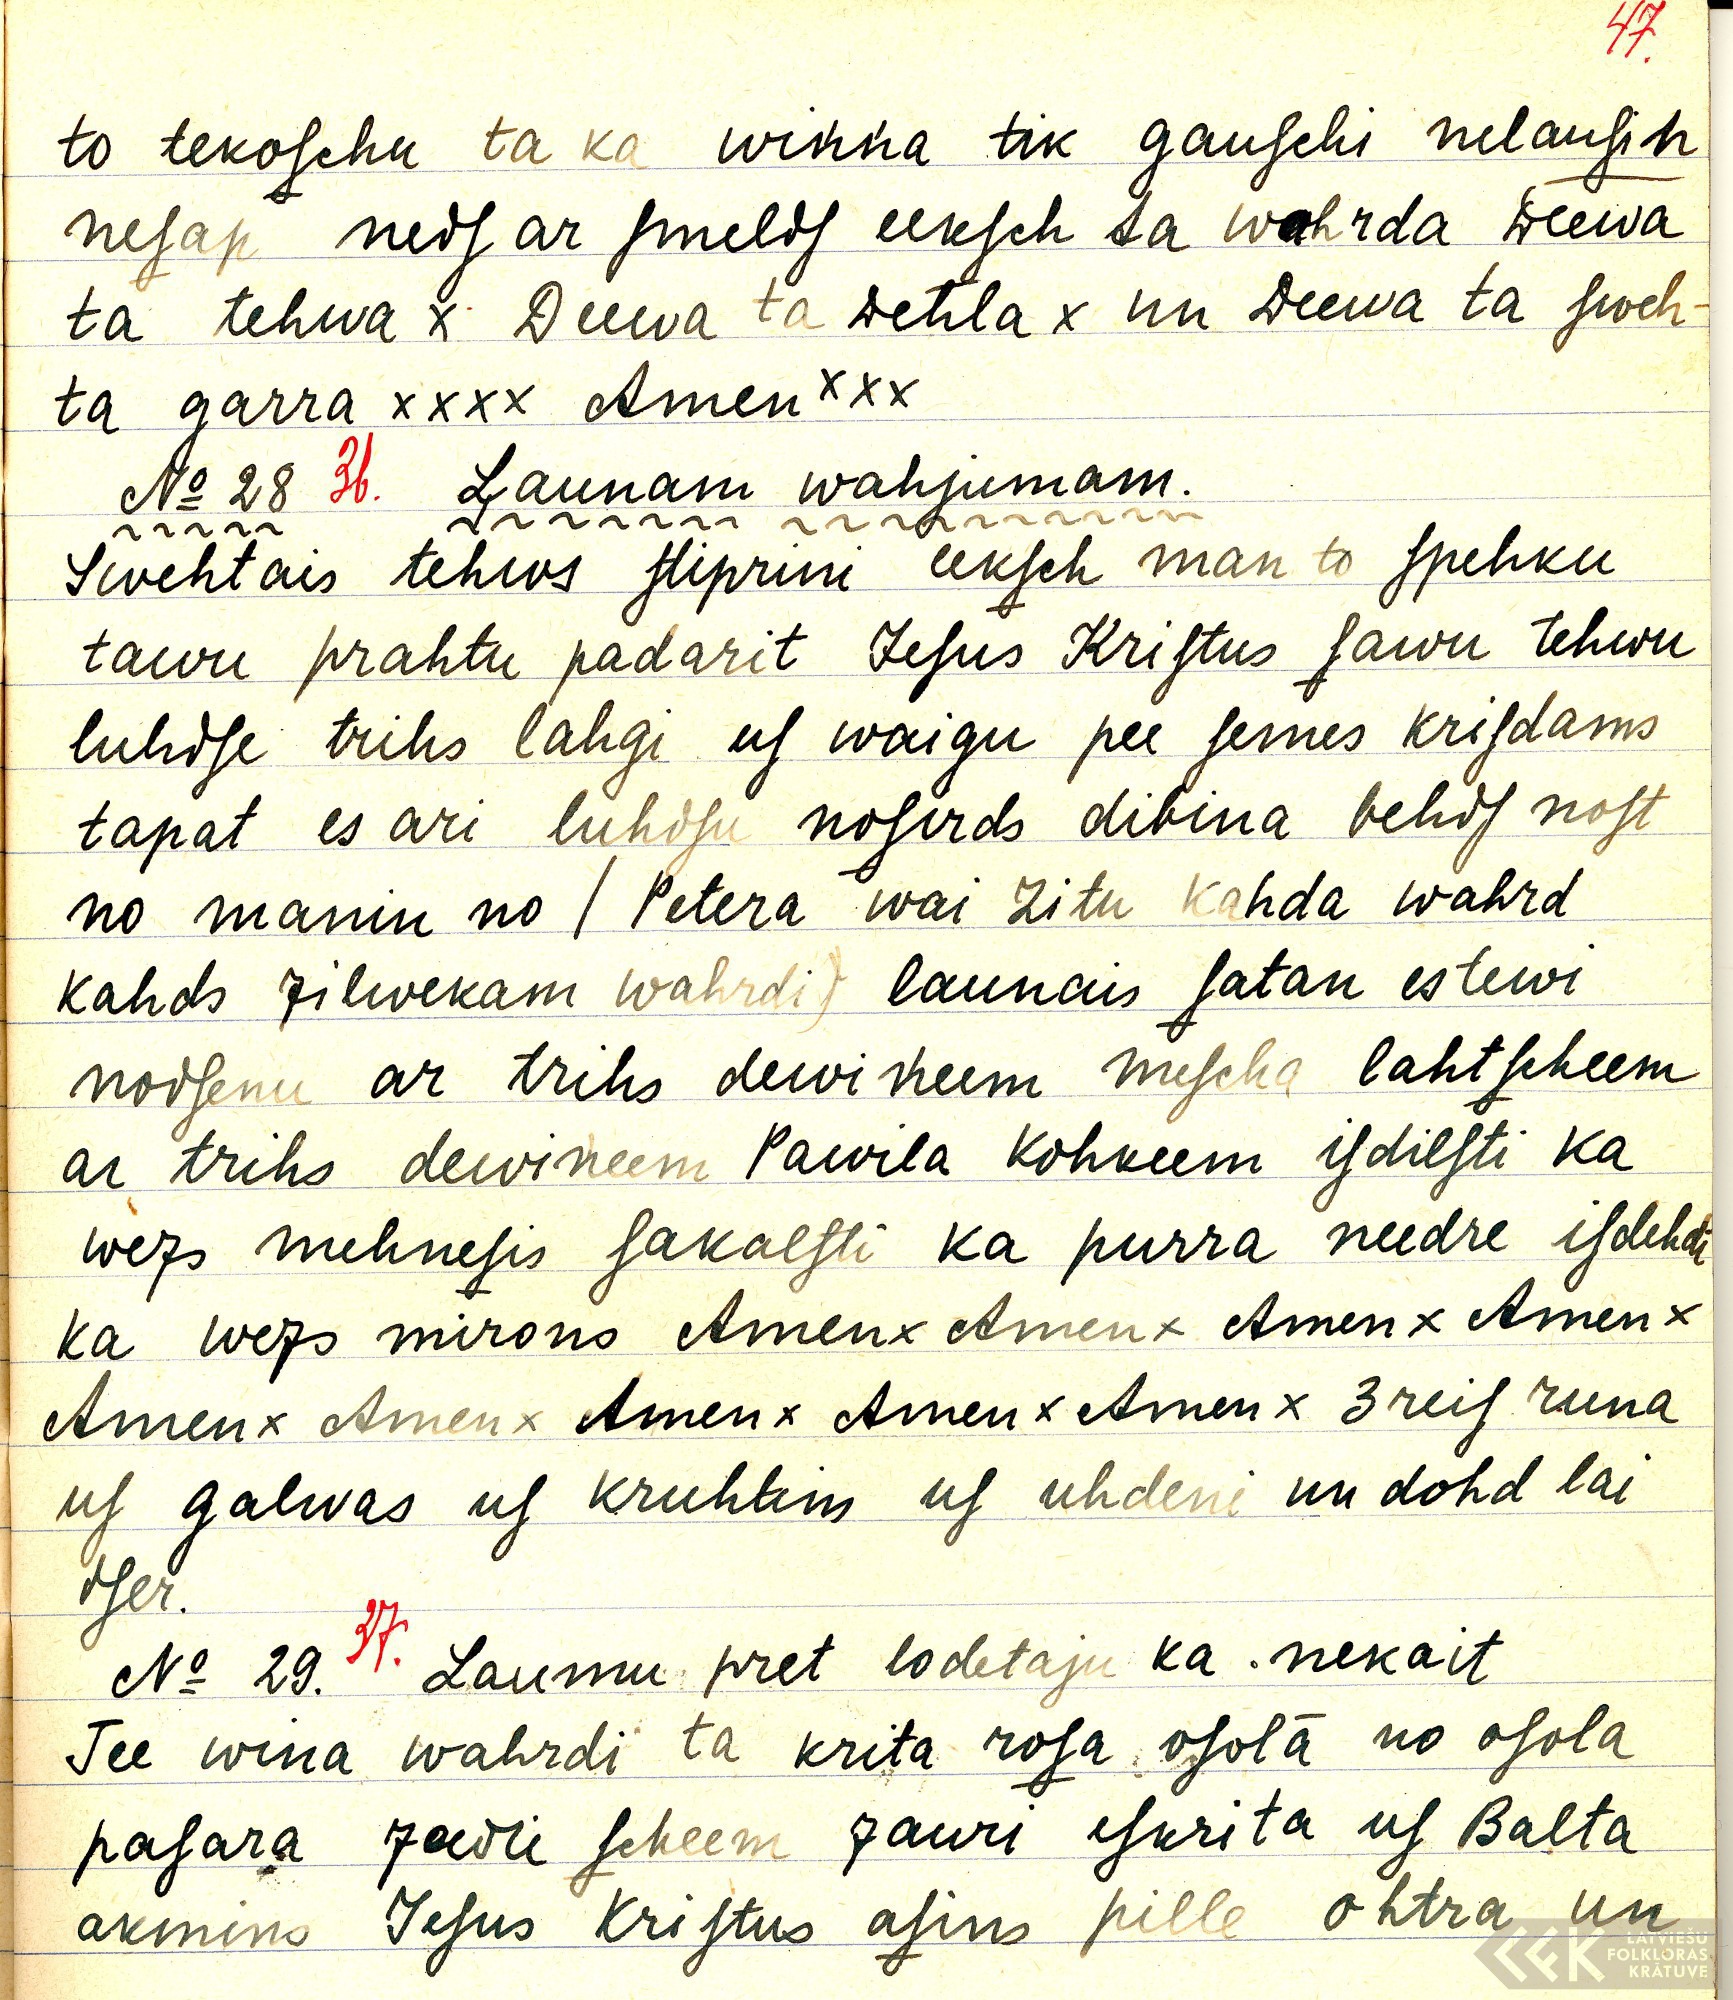 47.
to tekoſchu ta ka wiņņa tik gauſchi nelauſih
neſap nedſ ar ſmeldſ eekſch ta wahrda Deewa
ta tehwa x Deewa ta Dehla x un Deewa ta ſweh-
ta garra xxxx Amen xxx
№ 28 36. Launam wahjumam.
Swehtais tehws ſtiprini eekſch man to ſpehku
tawu prahtu padarit Jeſus Kriſtus ſawu tehwu
luhdſe trihs lahgi uſ waigu pee ſemes kriſdams
tapat es ari luhdſu noſirds dibina behdſ noſt
no maniu no / Petera wai Zitu kahda wahrd
kahds zilwekam wahrdi) launais ſatan es tewi
nodſenu ar trihs dewiņeem meſcha lahtſcheem
ar trihs dewiņeem Pawila kohkeem iſdilſti ka
wezs mehneſis ſakalſti ka purra needre iſdehdi
ka wezs mirons Amen x Amen x Amen x Amen x
Amen x Amen x Amen x Amen x Amen x 3 reiſ runa
uſ galwas uſ kruhtim uſ uhdeni un dohd lai
dſer.
№ 29. 37. Laumu pret lodetaju ka nekait
Tee wina wahrdi ta krita roſa oſolā no oſola
paſara zaur ſcheem zauri eſkrita uſ Balta
akmins Jeſus Kriſtus aſins pille ohtra un
LATVIEŠU
FOLKLORAS
KRĀTUVE